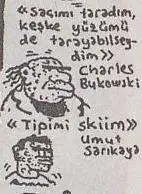 «Saçımı taradım,
keşke yüzümü
de tarayabilsey-
dim»
Charles
Bukowski
«Tipimi skiim»
Umut
Sarıkaya